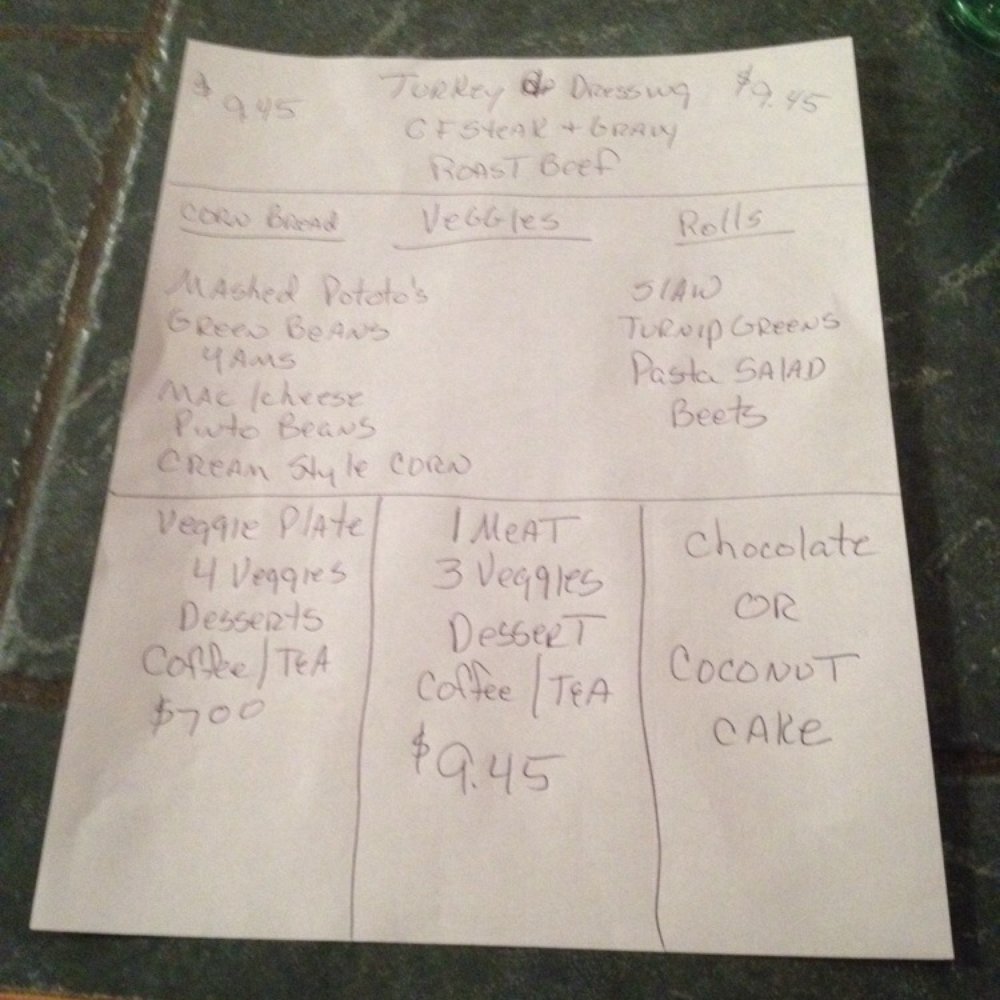 $9.45 Turkey & Dressing $9.45
CF Steak + Gravy
Roast Beef
Corn Bread Veggies Rolls
Mashed Pototo's
Green Beans
Yams
Mac/cheese
Pinto Beans
Cream Style Corn
Slaw
Turnip Greens
Pasta Salad
Beets
Veggie Plate
4 Veggies
Desserts
Coffee/Tea
$700
1 Meat
3 Veggies
Dessert
Coffee/Tea
$9.45
Chocolate
OR
Coconut
Cake